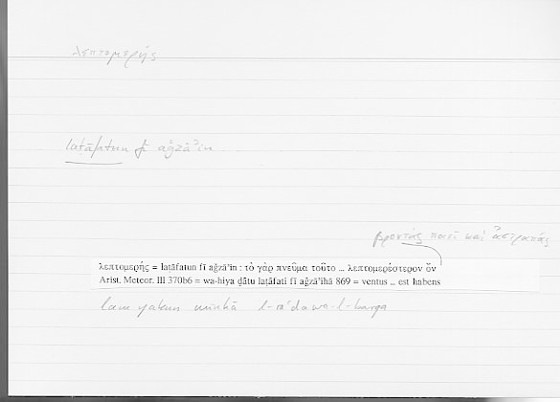 λεπτομερής
laṭāfatun fī aǧzāʾin
βροντάς φασι καὶ ἀστραπάς
λεπτομερής = laṭāfatun fī aǧzāʾin : τὸ γὰρ πνεῦμα τοῦτο ... λεπτομερέστερον ὂν
Arist. Meteor. III 370b6 = wa-hiya ḏātu laṭāfati fī aǧzāʾihā 869 = ventus ... est habens
lam yakun minhā l-raʿda wa-l-barqa